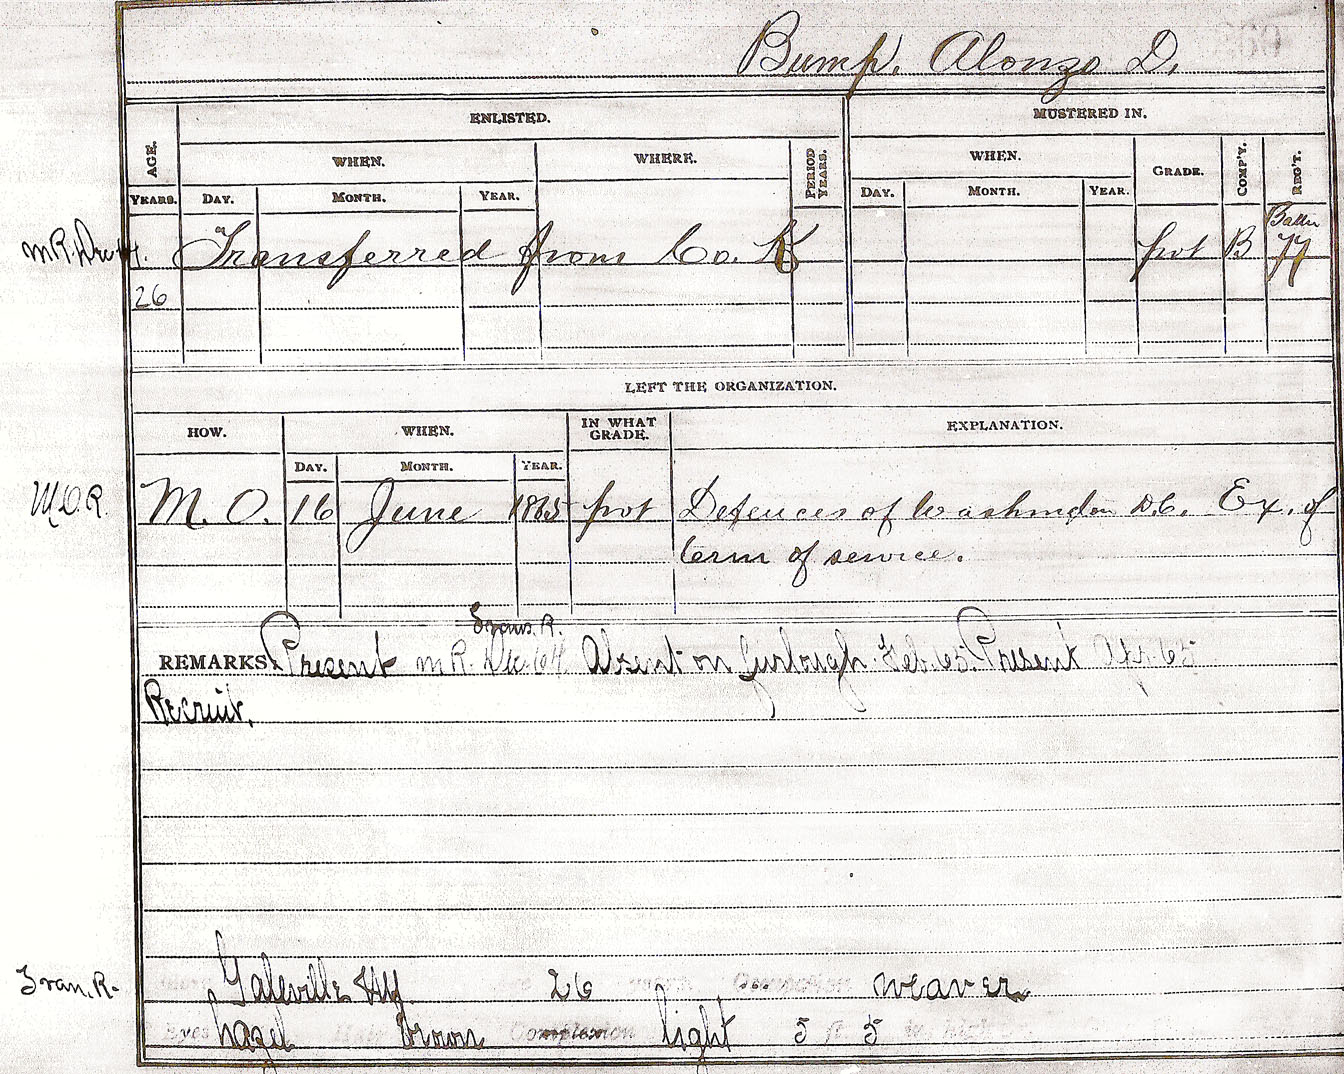 Bump, Alonzo D.
ENLISTED. MUSTERED IN.
AGE. WHEN. WHERE. PERIOD YEARS. WHEN. GRADE. COMP'Y. REG'T.
YEARS. DAY. MONTH. YEAR. DAY. MONTH. YEAR.
Batln
Transferred from Co. K pvt B 77
26
LEFT THE ORGANIZATION.
HOW. WHEN. IN WHAT GRADE. EXPLANATION.
DAY. MONTH. YEAR.
M.O.R. M. O. 16 June 1865 pvt Defences of Washington D.C. Ex. of
term of service.
Trans. R.
REMARKS: Present M.R. Dec. 64. Absent on furlough Feb. 65. Present Apr. 65
Recruit.
Tran. R. Born Galeville NY Age 26 years Occupation weaver
Eyes hazel Hair brown Complexion light 5 ft. 5 in. high